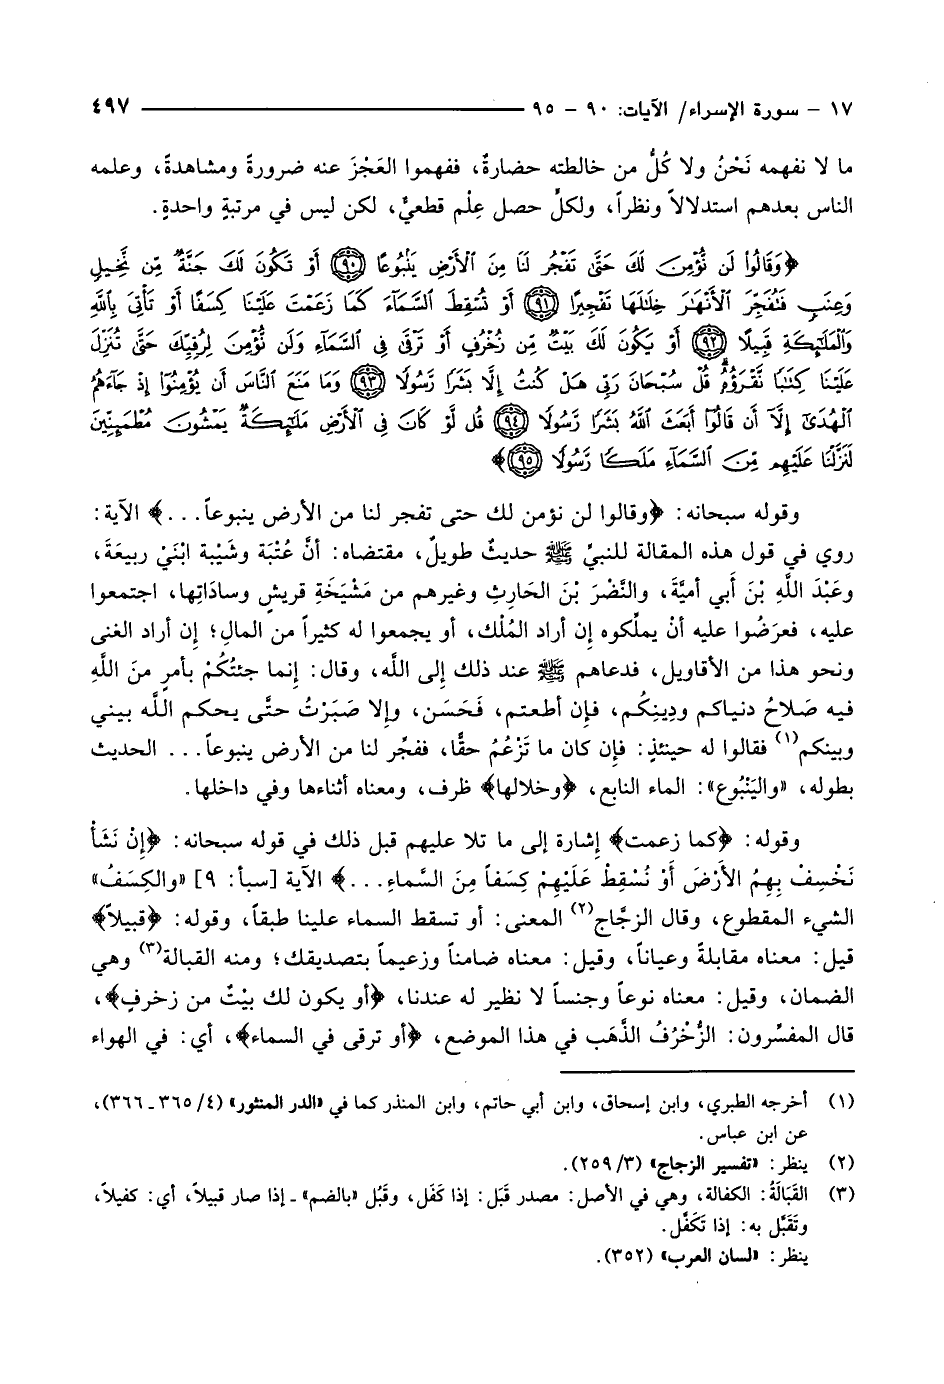 ١٧ - سورة الإسراء/ الآيات: ٩٠ - ٩٥ ٤٩٧
ما لا نفهمه نَحْنُ ولا كُلُّ من خالطته حضارةٌ، ففهموا العَجْزَ عنه ضرورةً ومشاهدةً، وعلمه
الناس بعدهم استدلالاً ونظراً، ولكلٍّ حصل عِلْم قطعيٌّ، لكن ليس في مرتبةٍ واحدةٍ.
﴿وَقَالُوا۟ لَن نُّؤْمِنَ لَكَ حَتَّىٰ تَفْجُرَ لَنَا مِنَ ٱلْأَرْضِ يَنۢبُوعًا ٩٠ أَوْ تَكُونَ لَكَ جَنَّةٌ مِّن نَّخِيلٍ
وَعِنَبٍ فَتُفَجِّرَ ٱلْأَنْهَٰرَ خِلَٰلَهَا تَفْجِيرًا ٩١ أَوْ تُسْقِطَ ٱلسَّمَآءَ كَمَا زَعَمْتَ عَلَيْنَا كِسَفًا أَوْ تَأْتِىَ بِٱللَّهِ
وَٱلْمَلَٰٓئِكَةِ قَبِيلًا ٩٢ أَوْ يَكُونَ لَكَ بَيْتٌ مِّن زُخْرُفٍ أَوْ تَرْقَىٰ فِى ٱلسَّمَآءِ وَلَن نُّؤْمِنَ لِرُقِيِّكَ حَتَّىٰ تُنَزِّلَ
عَلَيْنَا كِتَٰبًا نَّقْرَؤُهُۥ قُلْ سُبْحَانَ رَبِّى هَلْ كُنتُ إِلَّا بَشَرًا رَّسُولًا ٩٣ وَمَا مَنَعَ ٱلنَّاسَ أَن يُؤْمِنُوٓا۟ إِذْ جَآءَهُمُ
ٱلْهُدَىٰٓ إِلَّآ أَن قَالُوٓا۟ أَبَعَثَ ٱللَّهُ بَشَرًا رَّسُولًا ٩٤ قُل لَّوْ كَانَ فِى ٱلْأَرْضِ مَلَٰٓئِكَةٌ يَمْشُونَ مُطْمَئِنِّينَ
لَنَزَّلْنَا عَلَيْهِم مِّنَ ٱلسَّمَآءِ مَلَكًا رَّسُولًا ٩٥﴾
وقوله سبحانه: ﴿وقالوا لن نؤمن لك حتى تفجر لنا من الأرض ينبوعاً...﴾ الآية:
روي في قول هذه المقالة للنبيِّ ﷺ حديثٌ طويلٌ، مقتضاه: أنَّ عُتْبَة وشَيْبة ابْنَيْ ربيعَةَ،
وعَبْدَ اللَّهِ بْنَ أَبي أميَّةَ، والنَّضْرَ بْنَ الحَارِثِ وغيرهم من مَشْيَخَةِ قريشٍ وسادَاتِها، اجتمعوا
عليه، فعرَضُوا عليه أنْ يملِّكوه إن أراد المُلْك، أو يجمعوا له كثيراً من المالِ؛ إن أراد الغنى
ونحو هذا من الأقاويل، فدعاهم ﷺ عند ذلك إلى اللَّه، وقال: إنما جئتُكُمْ بأمرٍ منَ اللَّهِ
فيه صَلاحُ دنياكم ودِينِكُم، فإن أطعتم، فَحَسَن، وإلا صَبَرْتُ حتَّى يحكم اللَّه بيني
وبينكم(١) فقالوا له حينئذٍ: فإن كان ما تَزْعُمُ حقًّا، ففجِّر لنا من الأرض ينبوعاً... الحديث
بطوله، «واليَنْبُوع»: الماء النابع، ﴿وخلالها﴾ ظرف، ومعناه أثناءها وفي داخلها.
وقوله: ﴿كما زعمت﴾ إشارة إلى ما تلا عليهم قبل ذلك في قوله سبحانه: ﴿إِنْ نَشَأْ
نَخْسِفْ بِهِمُ الأَرْضَ أَوْ نُسْقِطْ عَلَيْهِمْ كِسَفاً مِنَ السَّماءِ...﴾ الآية [سبأ: ٩] «والكِسَفُ»
الشيء المقطوع، وقال الزجَّاج(٢) المعنى: أو تسقط السماء علينا طبقاً، وقوله: ﴿قبيلاً﴾
قيل: معناه مقابلةً وعياناً، وقيل: معناه ضامناً وزعيماً بتصديقك؛ ومنه القبالة(٣) وهي
الضمان، وقيل: معناه نوعاً وجنساً لا نظير له عندنا، ﴿أو يكون لك بيْتٌ من زخرفٍ﴾،
قال المفسِّرون: الزُّخْرُفُ الذَّهَب في هذا الموضع، ﴿أو ترقى في السماء﴾، أي: في الهواء
(١) أخرجه الطبري، وابن إسحاق، وابن أبي حاتم، وابن المنذر كما في «الدر المنثور» (٤/ ٣٦٥ ـ ٣٦٦)،
عن ابن عباس.
(٢) ينظر: «تفسير الزجاج» (٣/ ٢٥٩).
(٣) القَبَالَةُ: الكفالة، وهي في الأصل: مصدر قَبَل: إذا كَفَل، وقَبُل «بالضم» ـ إذا صار قبيلاً، أي: كفيلاً،
وتَقَبَّل به: إذا تَكَفَّل.
ينظر: «لسان العرب» (٣٥٢).